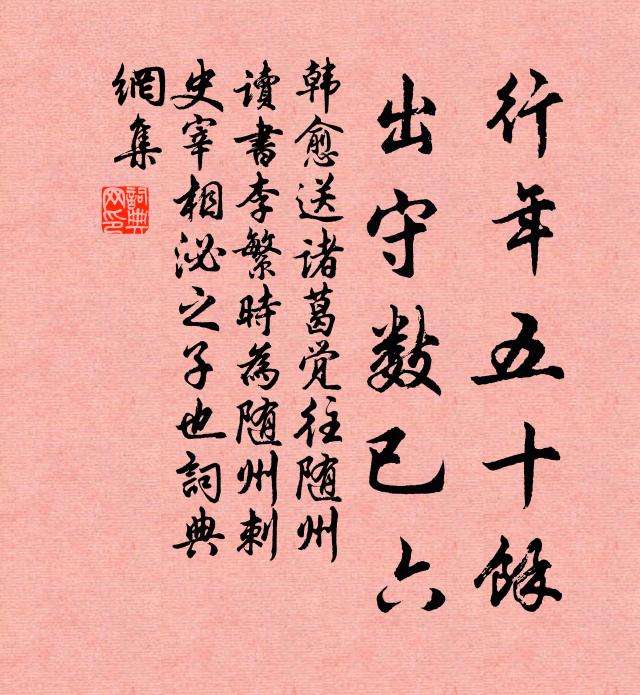 行年五十餘
出守数已六
韩愈送诸葛觉往随州
讀書李繁時為随州刺
史宰相泌之子也詞典
網集
詞典
网印